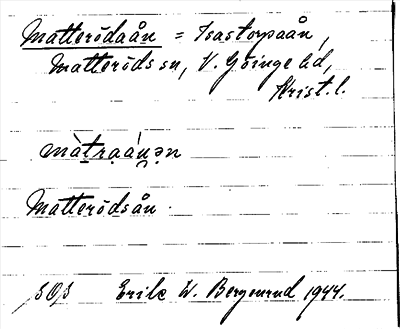 Matterödaån = Isastorpaån,
Matteröds sn, V. Göinge hd,
Krist. l.
màtraánən
Matterödsån.
SOS Erik W. Bergenrud 1944.